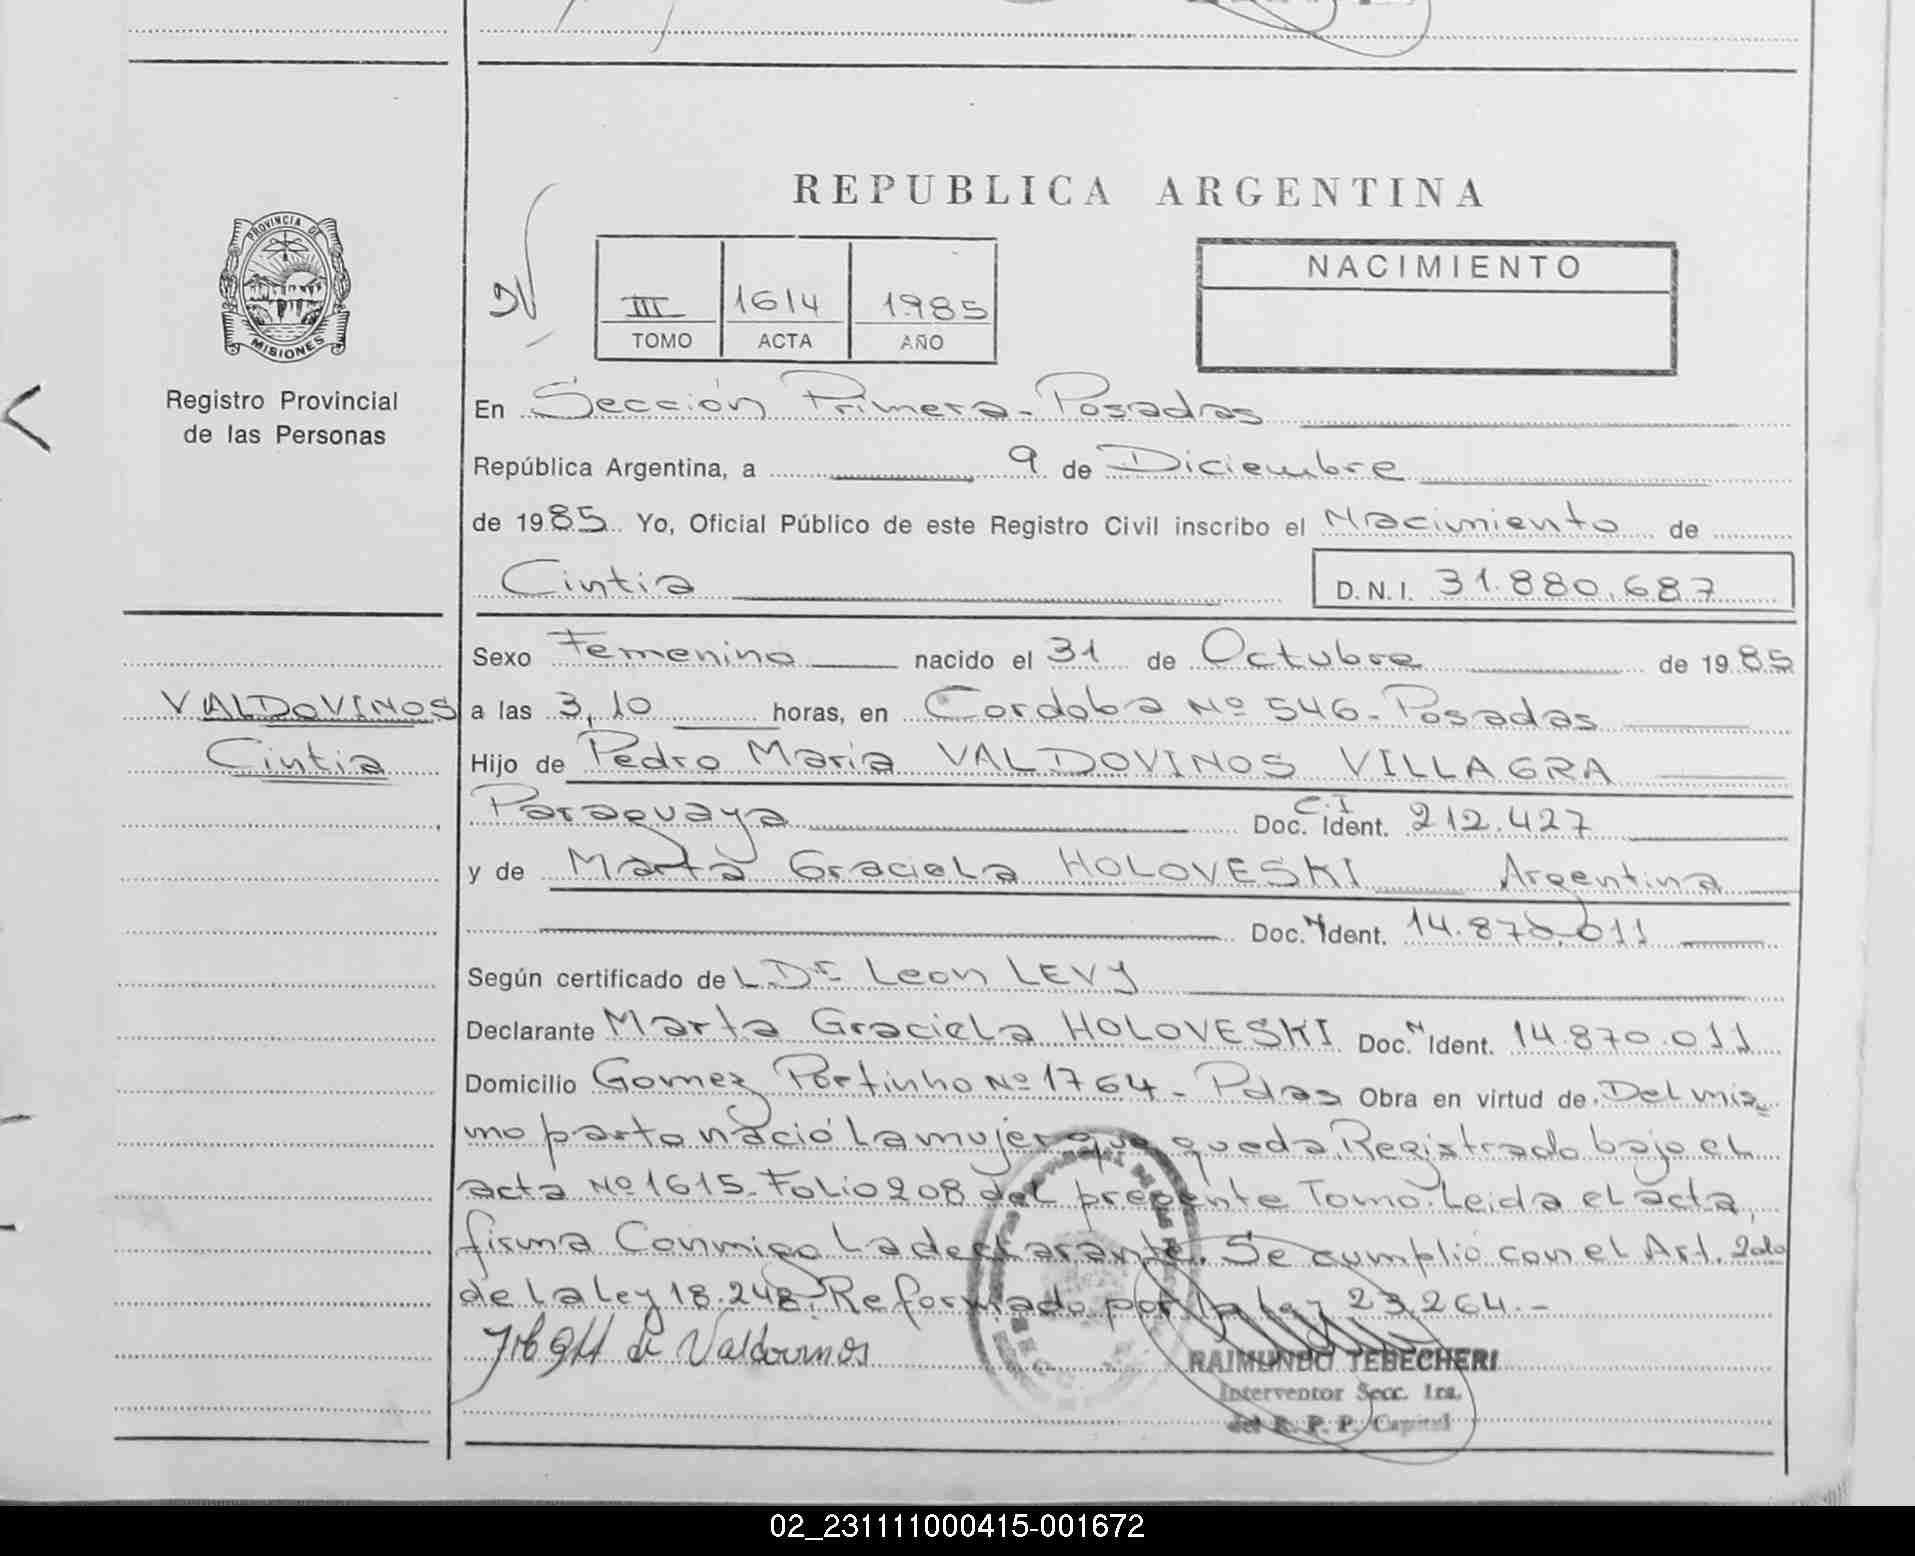 REPUBLICA ARGENTINA
PROVINCIA DE
MISIONES
Registro Provincial
de las Personas
III 1614 1985
TOMO ACTA AÑO
NACIMIENTO
En Sección Primera - Posadas
República Argentina, a 9 de Diciembre
de 1985 Yo, Oficial Público de este Registro Civil inscribo el Nacimiento de
Cintia D.N.I. 31.880.687
Sexo Femenino nacido el 31 de Octubre de 1985
VALDOVINOS
Cintia
a las 3,10 horas, en Cordoba Nº 546 - Posadas
Hijo de Pedro Maria VALDOVINOS VILLAGRA
Paraguaya Doc. C.I Ident. 212.427
y de Marta Graciela HOLOVESKI Argentina
Doc. N Ident. 14.870.011
Según certificado de L. Dr Leon LEVY
Declarante Marta Graciela HOLOVESKI Doc. N Ident. 14.870.011
Domicilio Gomez Portinho Nº 1764 - Pdas Obra en virtud de Del mis
mo parto nació la mujer que queda Registrado bajo el
acta Nº 1615 - Folio 208 del presente Tomo. Leida el acta,
firma Conmigo la declarante. Se cumplió con el Art. 2do
de la Ley 18.248. Reformado por la Ley 23.264.-
de Valdovinos
RAIMUNDO TEBECHERI
Interventor Secc. 1ra.
del R. P. P. Capital
02_231111000415-001672